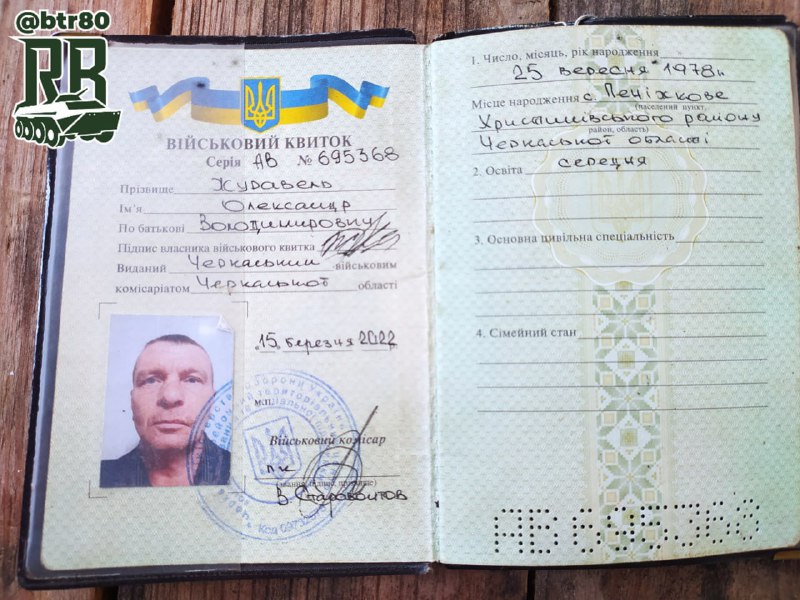 @btr80
RB
ВІЙСЬКОВИЙ КВИТОК
Серія АВ № 695368
Прізвище Журавель
Ім'я Олександр
По батькові Володимирович
Підпис власника військового квитка
Виданий Черкаський військовим
комісаріатом Черкаської області
"15" березня 2022
м.п.
Військовий комісар
п-к
(звання, підпис, прізвище)
В. Старовойтов
1. Число, місяць, рік народження
25 вересня 1978 р.
Місце народження с. Пеніжкове
(населений пункт,
Христинівського району
район, область)
Черкаської області
2. Освіта середня
3. Основна цивільна спеціальність
4. Сімейний стан
АВ 695368